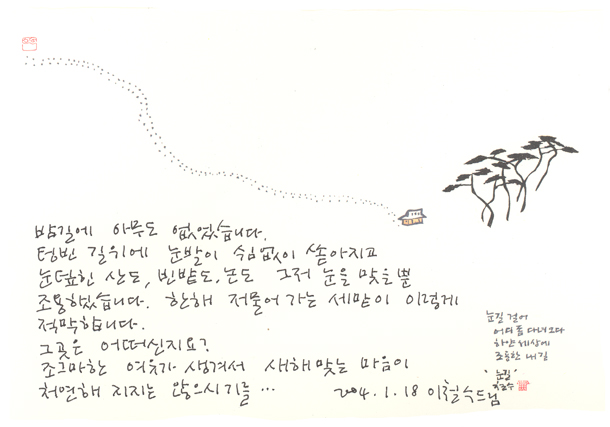 밤길에 아무도 없었습니다.
텅빈 길위에 눈발이 쉼없이 쏟아지고
눈덮힌 산도, 빈밭도, 논도 그저 눈을 맞을 뿐
조용했습니다. 한해 저물어 가는 세밑이 이렇게
적막합니다.
그곳은 어떠신지요?
조그마한 여유가 생겨서 새해맞는 마음이
처연해 지지는 않으시기를 …
2004. 1. 18 이철수드림
눈길 걸어
어디쯤 다녀오다
하얀 세상에
조용한 내 길
'눈길'